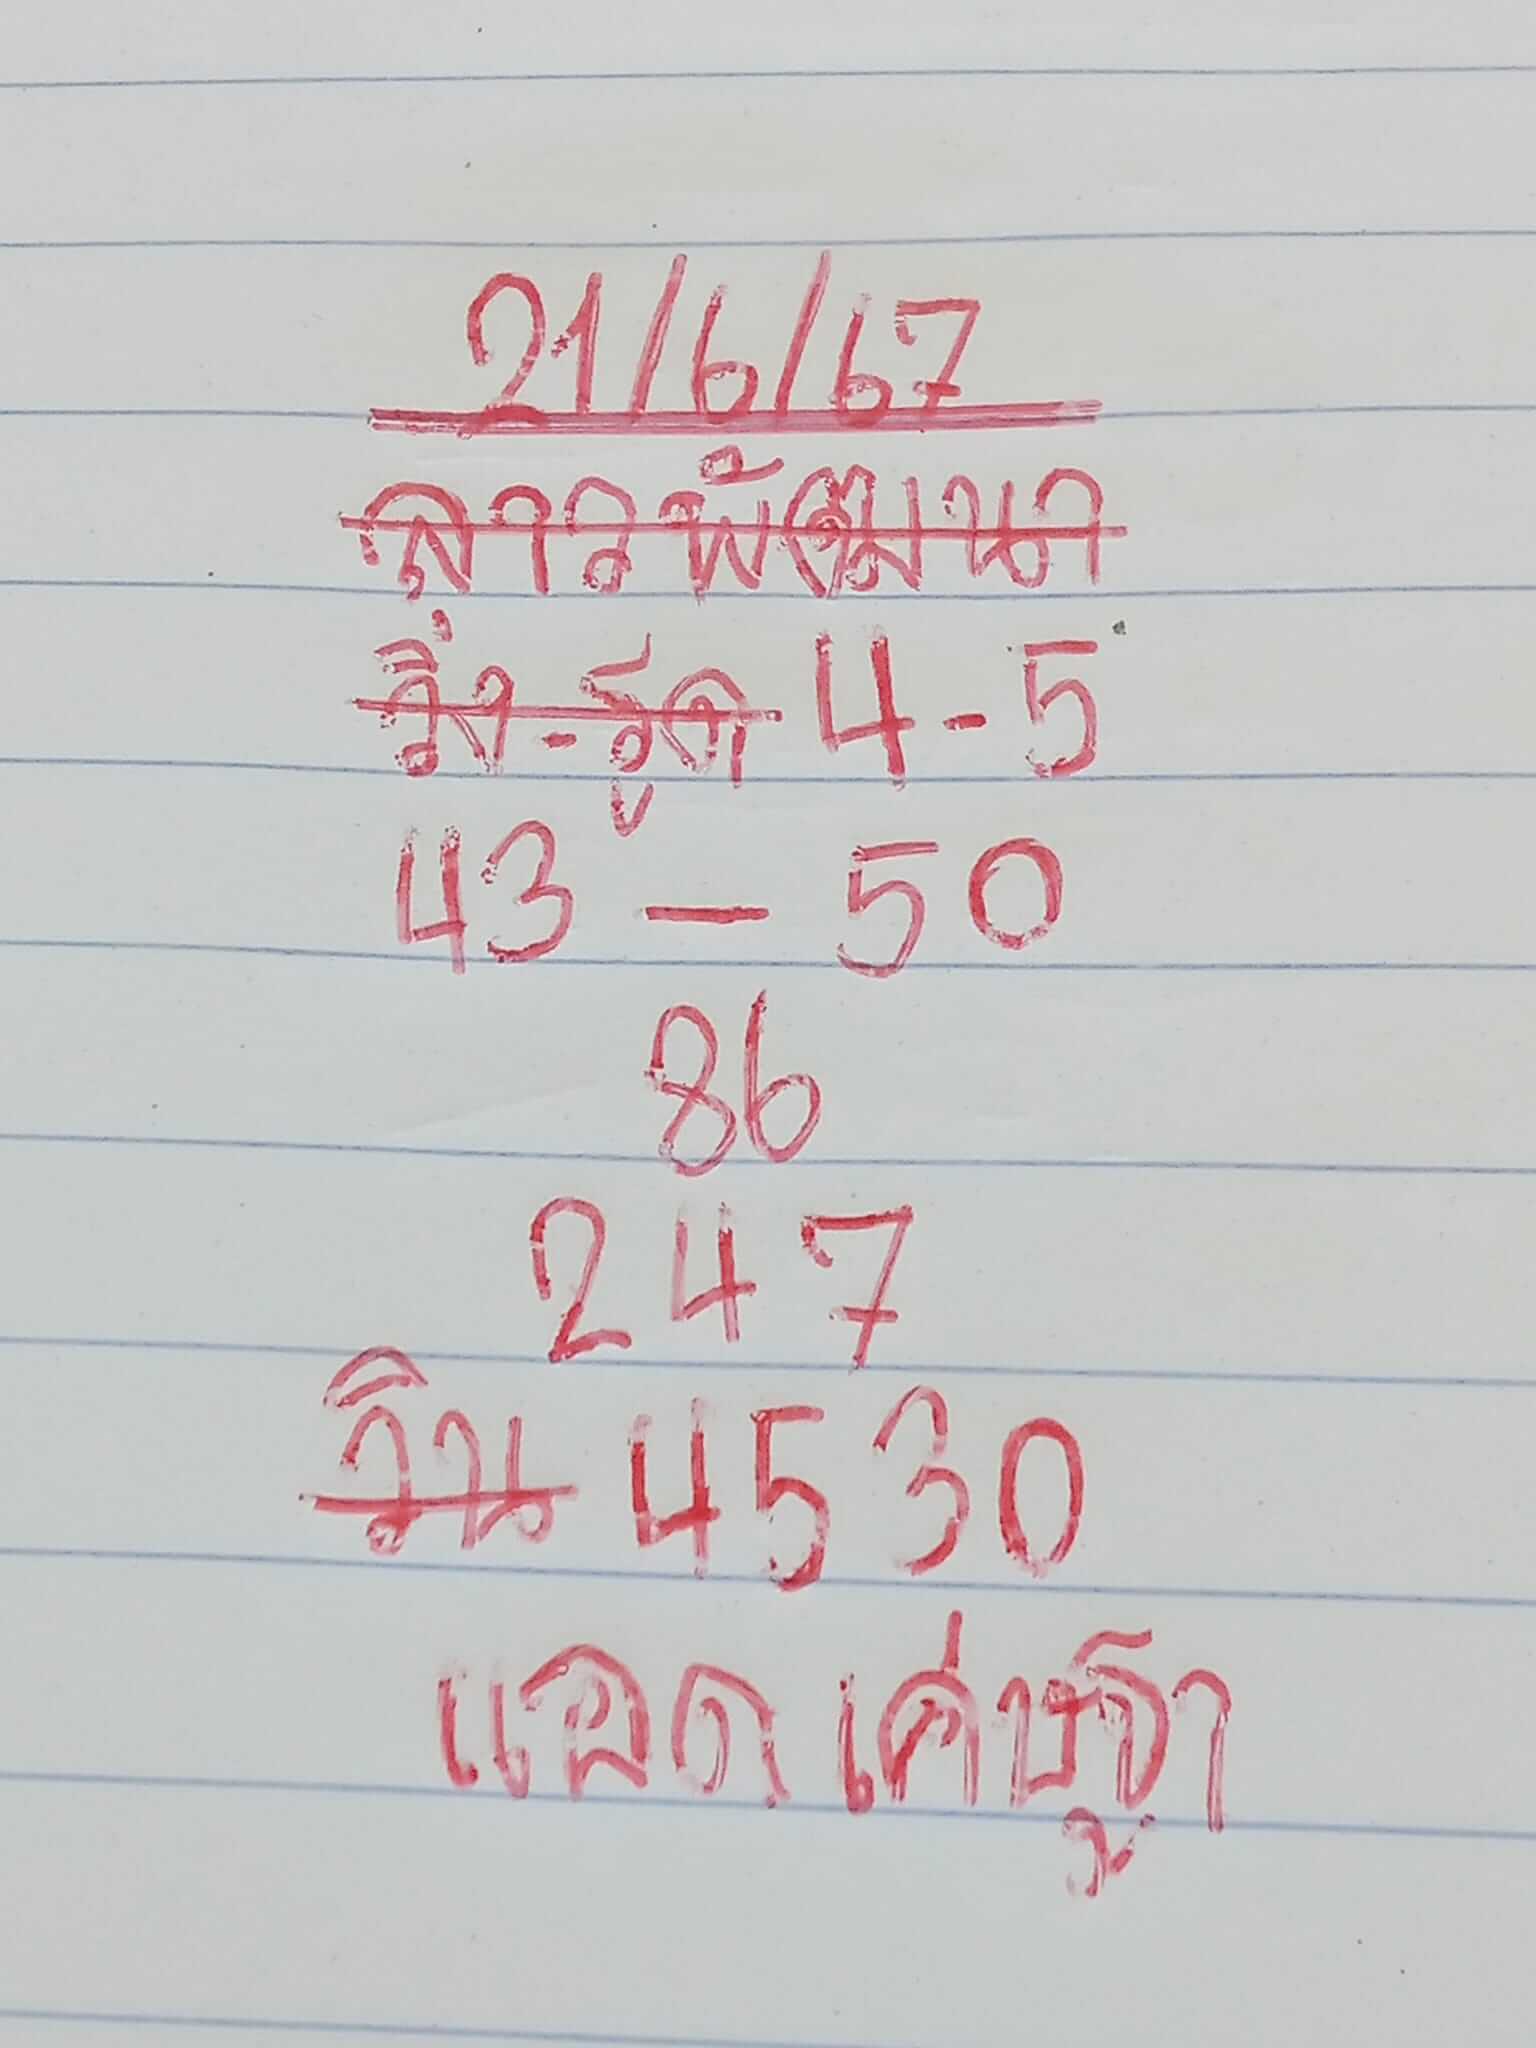 21/6/67
ลาวพัฒนา
วิ่ง-รูด 4-5
43 - 50
86
247
วิน 4530
แอด เค่ษฐา